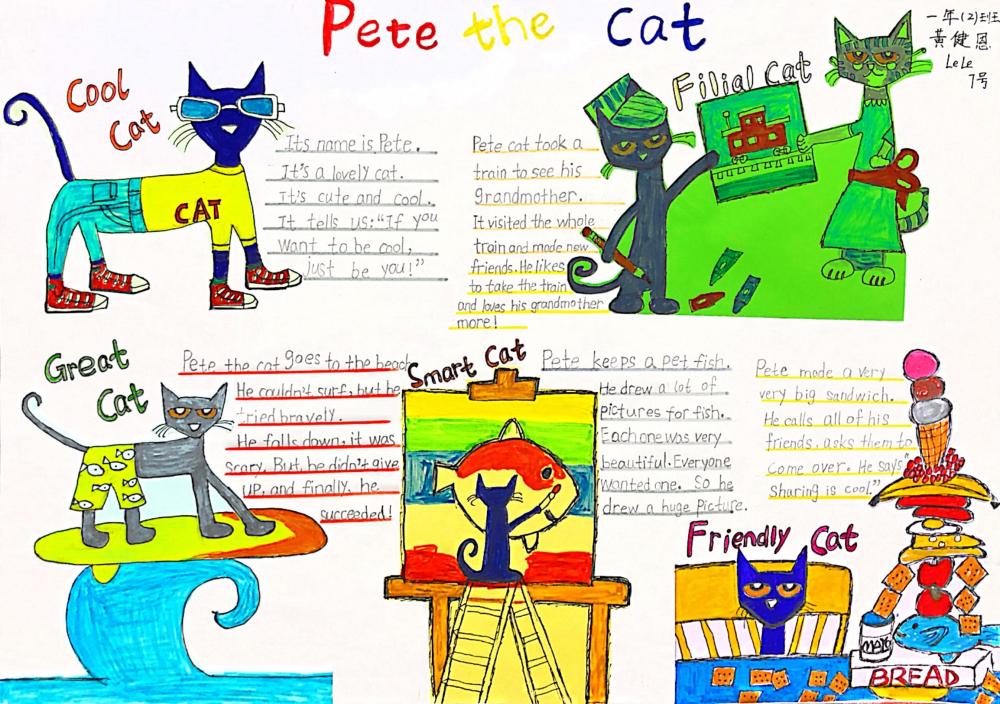 Pete the Cat
一年(2)班
黄健恩
LeLe
7号
Cool
Cat
CAT
Its name is Pete.
It's a lovely cat.
It's cute and cool.
It tells us:"If you
want to be cool,
just be you!"
Filial Cat
Pete cat took a
train to see his
grandmother.
It visited the whole
train and made new
friends. He likes
to take the train
and loves his grandmother
more!
Great
Cat
Pete the cat goes to the beach
He couldn't surf, but he
tried bravely.
He falls down, it was
scary. But, he didn't give
up, and finally, he
succeeded!
Smart Cat
Pete keeps a pet fish.
He drew a lot of
pictures for fish.
Each one was very
beautiful. Everyone
wanted one. So he
drew a huge picture.
Friendly Cat
Pete made a very
very big sandwich.
He calls all of his
friends, asks them to
come over. He says"
Sharing is cool"
MAYO
BREAD